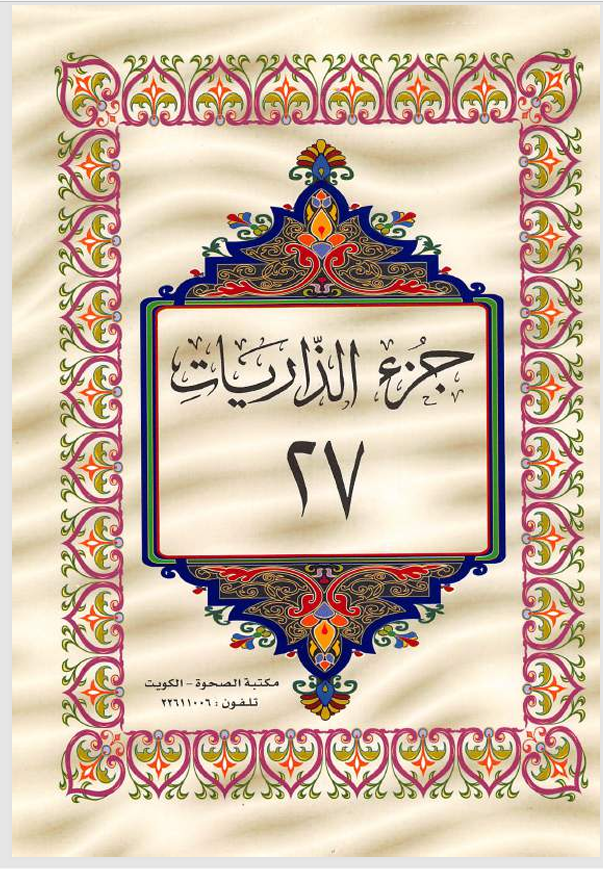 جُزء الذّاريَاتِ
٢٧
مكتبة الصحوة - الكويت
تلفون : ٢٢٦١١٠٠٦